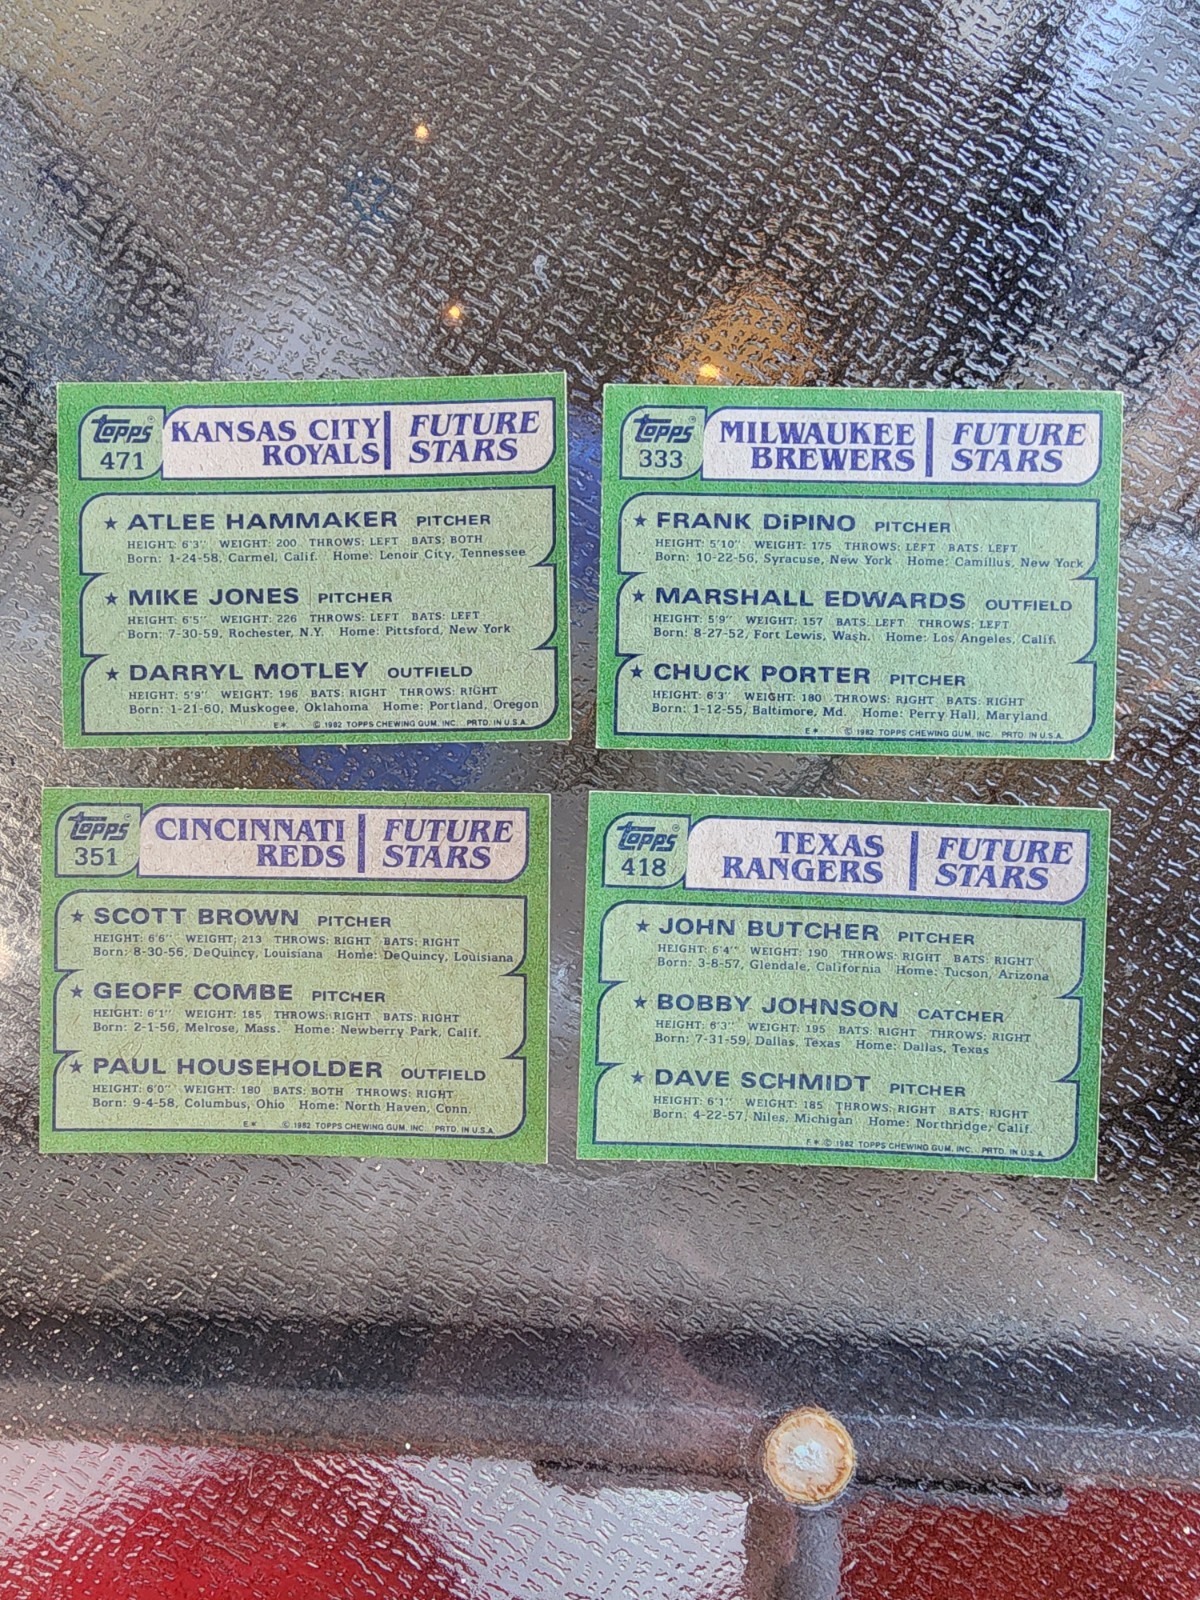 topps®
471
KANSAS CITY ROYALS
FUTURE STARS
★ ATLEE HAMMAKER PITCHER
HEIGHT: 6'3" WEIGHT: 200 THROWS: LEFT BATS: BOTH
Born: 1-24-58, Carmel, Calif. Home: Lenoir City, Tennessee
★ MIKE JONES PITCHER
HEIGHT: 6'5" WEIGHT: 226 THROWS: LEFT BATS: LEFT
Born: 7-30-59, Rochester, N.Y. Home: Pittsford, New York
★ DARRYL MOTLEY OUTFIELD
HEIGHT: 5'9" WEIGHT: 196 BATS: RIGHT THROWS: RIGHT
Born: 1-21-60, Muskogee, Oklahoma Home: Portland, Oregon
E* © 1982 TOPPS CHEWING GUM, INC. PRTD. IN U.S.A.
topps®
333
MILWAUKEE BREWERS
FUTURE STARS
★ FRANK DiPINO PITCHER
HEIGHT: 5'10" WEIGHT: 175 THROWS: LEFT BATS: LEFT
Born: 10-22-56, Syracuse, New York Home: Camillus, New York
★ MARSHALL EDWARDS OUTFIELD
HEIGHT: 5'9" WEIGHT: 157 BATS: LEFT THROWS: LEFT
Born: 8-27-52, Fort Lewis, Wash. Home: Los Angeles, Calif.
★ CHUCK PORTER PITCHER
HEIGHT: 6'3" WEIGHT: 180 THROWS: RIGHT BATS: RIGHT
Born: 1-12-55, Baltimore, Md. Home: Perry Hall, Maryland
E* © 1982 TOPPS CHEWING GUM, INC. PRTD. IN U.S.A.
topps®
351
CINCINNATI REDS
FUTURE STARS
★ SCOTT BROWN PITCHER
HEIGHT: 6'6" WEIGHT: 213 THROWS: RIGHT BATS: RIGHT
Born: 8-30-56, DeQuincy, Louisiana Home: DeQuincy, Louisiana
★ GEOFF COMBE PITCHER
HEIGHT: 6'1" WEIGHT: 185 THROWS: RIGHT BATS: RIGHT
Born: 2-1-56, Melrose, Mass. Home: Newberry Park, Calif.
★ PAUL HOUSEHOLDER OUTFIELD
HEIGHT: 6'0" WEIGHT: 180 BATS: BOTH THROWS: RIGHT
Born: 9-4-58, Columbus, Ohio Home: North Haven, Conn.
E* © 1982 TOPPS CHEWING GUM, INC. PRTD. IN U.S.A.
topps®
418
TEXAS RANGERS
FUTURE STARS
★ JOHN BUTCHER PITCHER
HEIGHT: 6'4" WEIGHT: 190 THROWS: RIGHT BATS: RIGHT
Born: 3-8-57, Glendale, California Home: Tucson, Arizona
★ BOBBY JOHNSON CATCHER
HEIGHT: 6'3" WEIGHT: 195 BATS: RIGHT THROWS: RIGHT
Born: 7-31-59, Dallas, Texas Home: Dallas, Texas
★ DAVE SCHMIDT PITCHER
HEIGHT: 6'1" WEIGHT: 185 THROWS: RIGHT BATS: RIGHT
Born: 4-22-57, Niles, Michigan Home: Northridge, Calif.
F* © 1982 TOPPS CHEWING GUM, INC. PRTD. IN U.S.A.